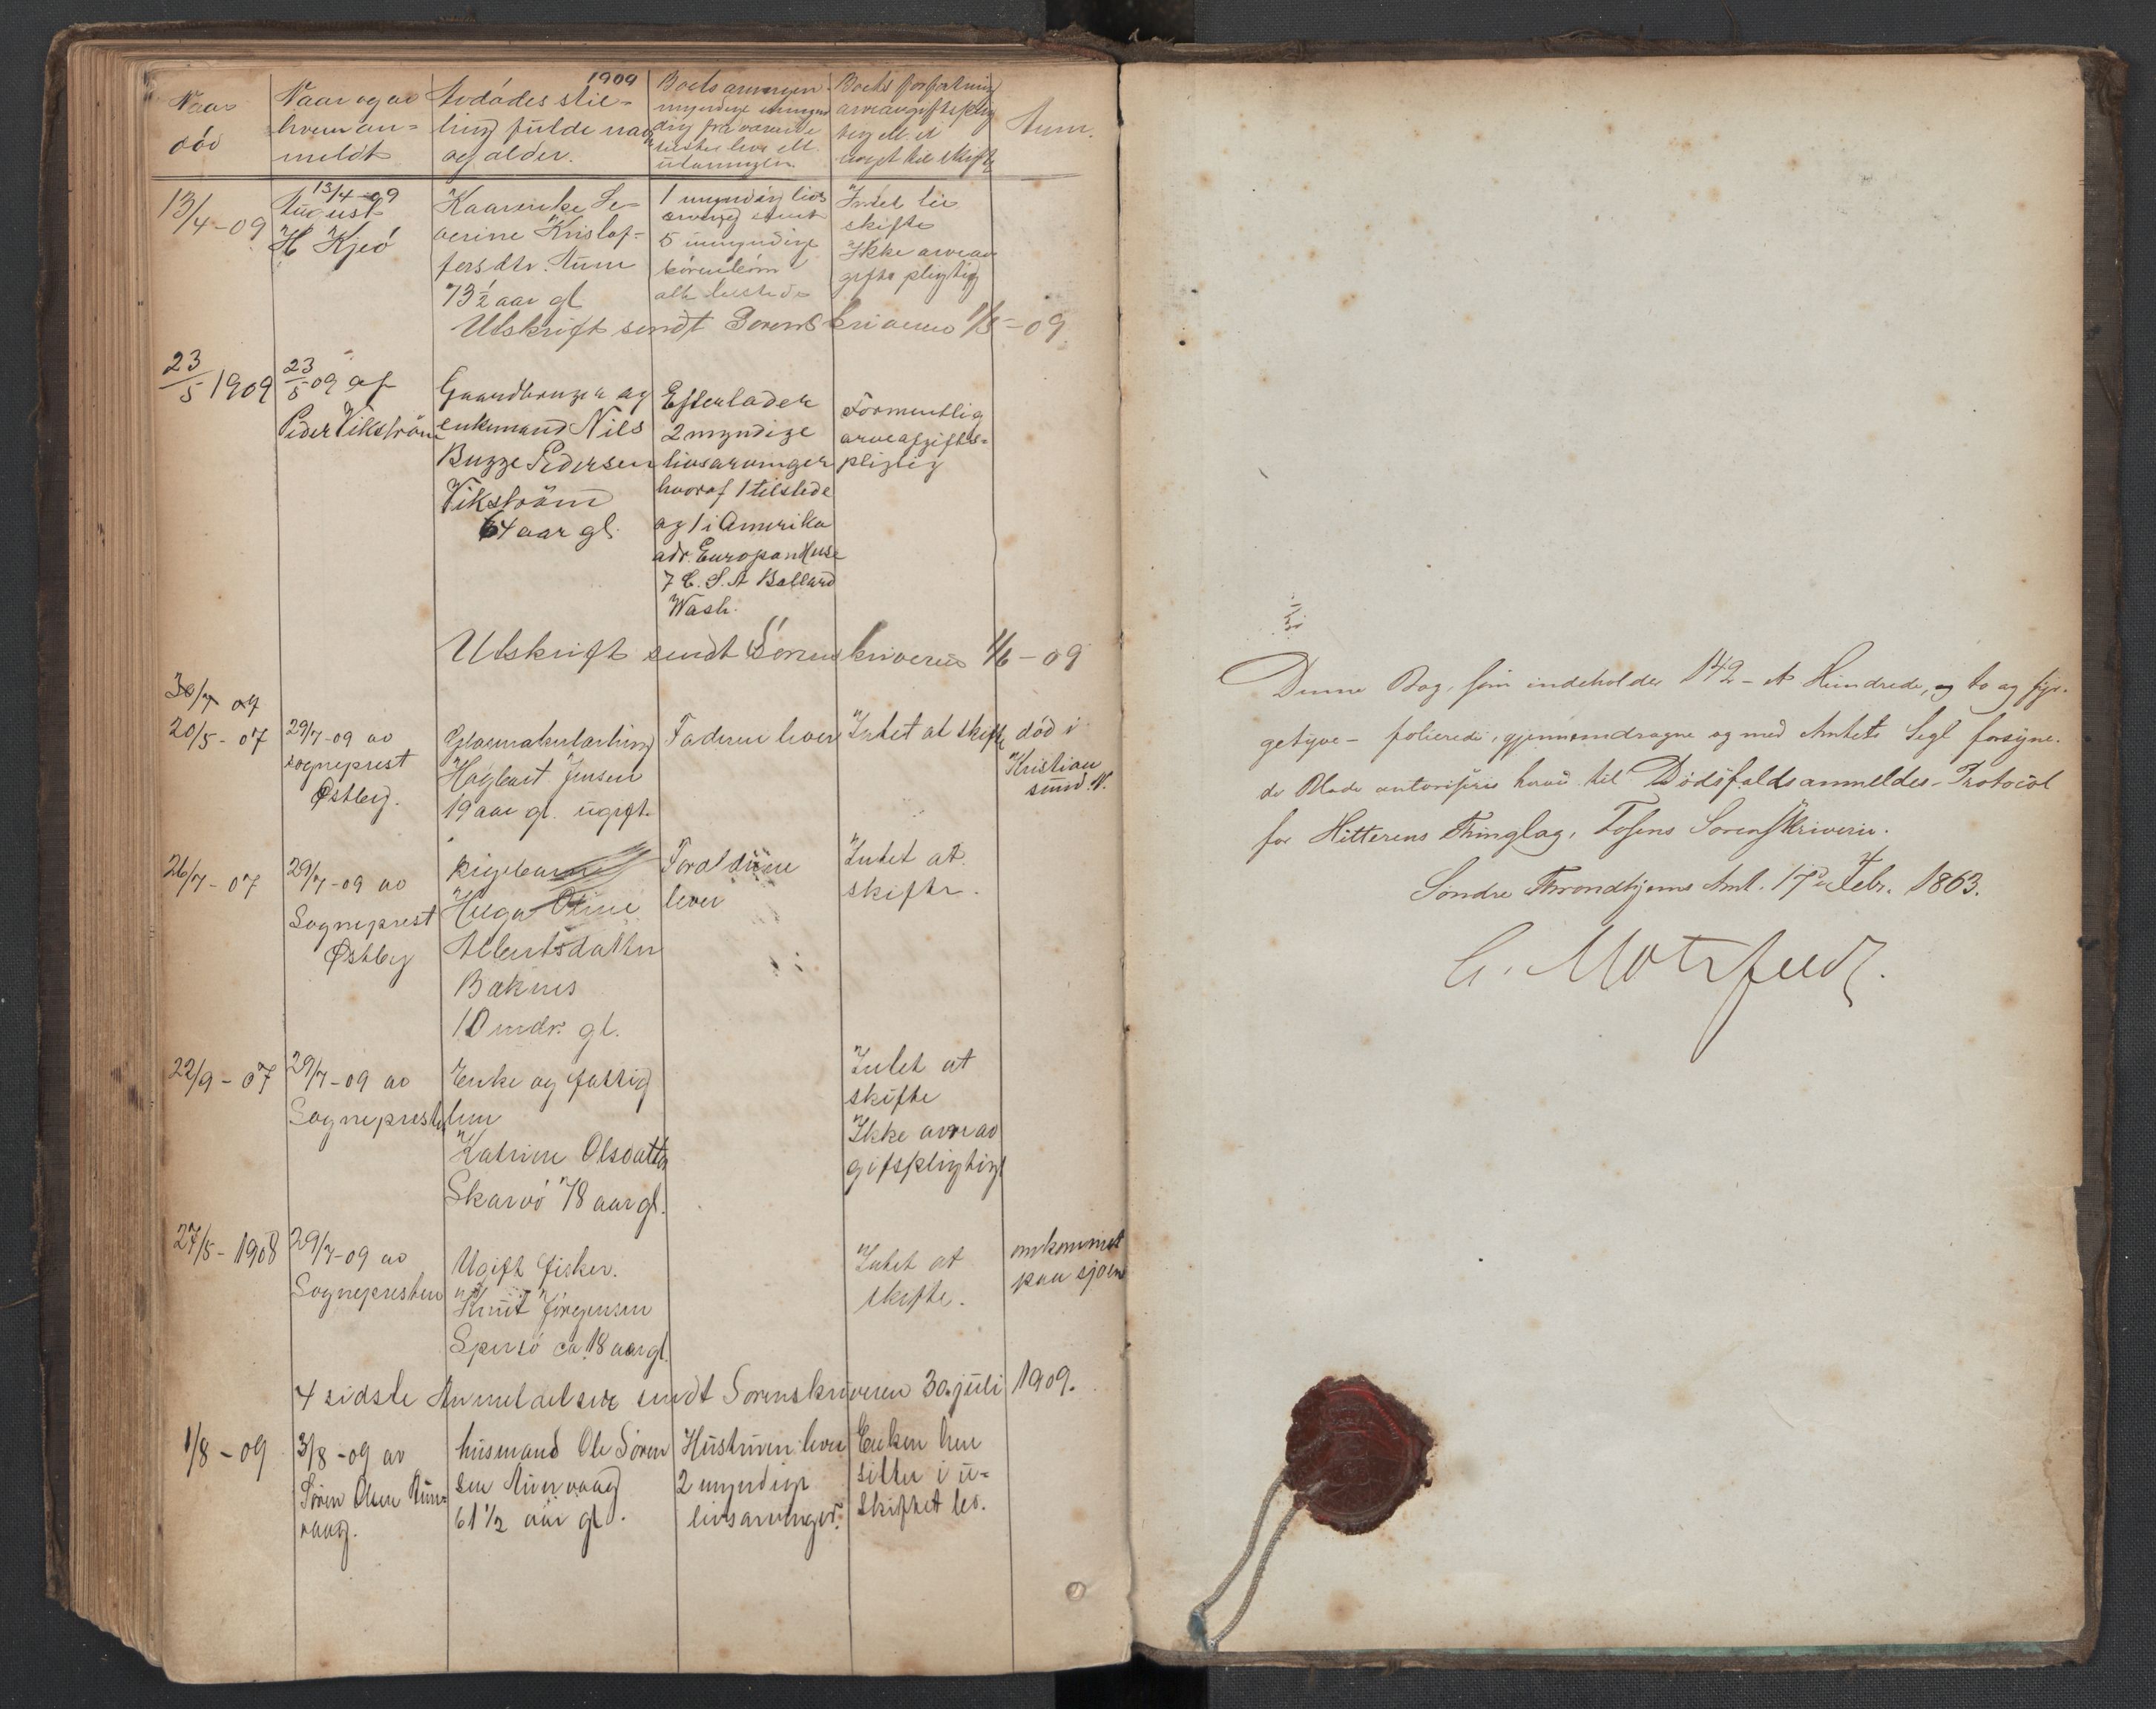 1909
Naar
död
Naar og av
hvem an=
meldt
Avdødes stil=
ling fulde navn
og alder.
Boets arvinger
myndige umyn
dig fraværende
tilstede leve ell.
utarvinger
Boets forfatning
arveavgiftsplig
tig ell ei
Anm.
13/4-09
13/4-09
August
H Kjeö
Kaarenke Se
verine Kristof=
fersdtr.
73½ aar gl
1 myndig livs
arving samt
5 umyndige
börnebörn
alle tilstede
Intet til
skifte
Ikke arveav
gifts pligtig
Utskrift sendt Sorenskriveren 1/5-09
23/5 1909
23/5 09 af
Peder Vikström
Gaardbruger og
enkemand Nils
Bugge Pedersen
Vikström
64 aar gl.
Efterlader
2 myndige
livsarvinger
hvoraf 1 tilstede
og 1 i Amerika
adr. Europan Huse
7 C. S. A Ballard
Wash.
Formentlig
arveafgifts=
pligtig
Utskrift sendt Sorenskriveren 1/6-09
30/7 09
20/5-07
29/7-09 av
sogneprest
Østberg.
Hagbart Jensen
19 aar gl. ugift.
Faderen lever
Intet at skifte
död i
Kristian
sund N.
26/7-07
29/7-09 av
Sogneprest
Østberg
Pigebarn
Helga Oline
Albertsdatter
Baknes
10 mdr. gl.
Foraldrene
lever
Intet at
skifte.
22/9-07
29/7-09 av
Sognepresten
Enke og fattig
lem
Katrine Olsdatter
Skarvö 78 aar gl.
Intet at
skifte
Ikke arveav
giftspligtig
27/5-1908
29/7-09 av
Sognepresten
Ugift fisker.
Knut Jörgensen
ca 18 aar gl.
Intet at
skifte.
omkommet
paa sjøen
4 sidste Anmeldelser sendt Sorenskriveren 30. juli 1909.
1/8-09
3/8-09 av
Sören Olsen Aun=
vaag.
husmand Ole Sören
sen Aunvaag
61½ aar gl.
Hustruen lever
2 myndige
livsarvinger.
Enken hen
sitter i u=
skiftet bo.
Denne Bog, som indeholder 142 - et Hundrede, og to og fyr-
getyve - folierede, gjennemdragne og med Amtets Segl forsyne-
de Blade autoriseres herved til Dødsfaldsanmeldes-Protocol
for Hitterens Thinglag, Fosens Sorenskriverie.
Søndre Throndhjems Amt. 17de Febr. 1863.
C. Motzfeldt.